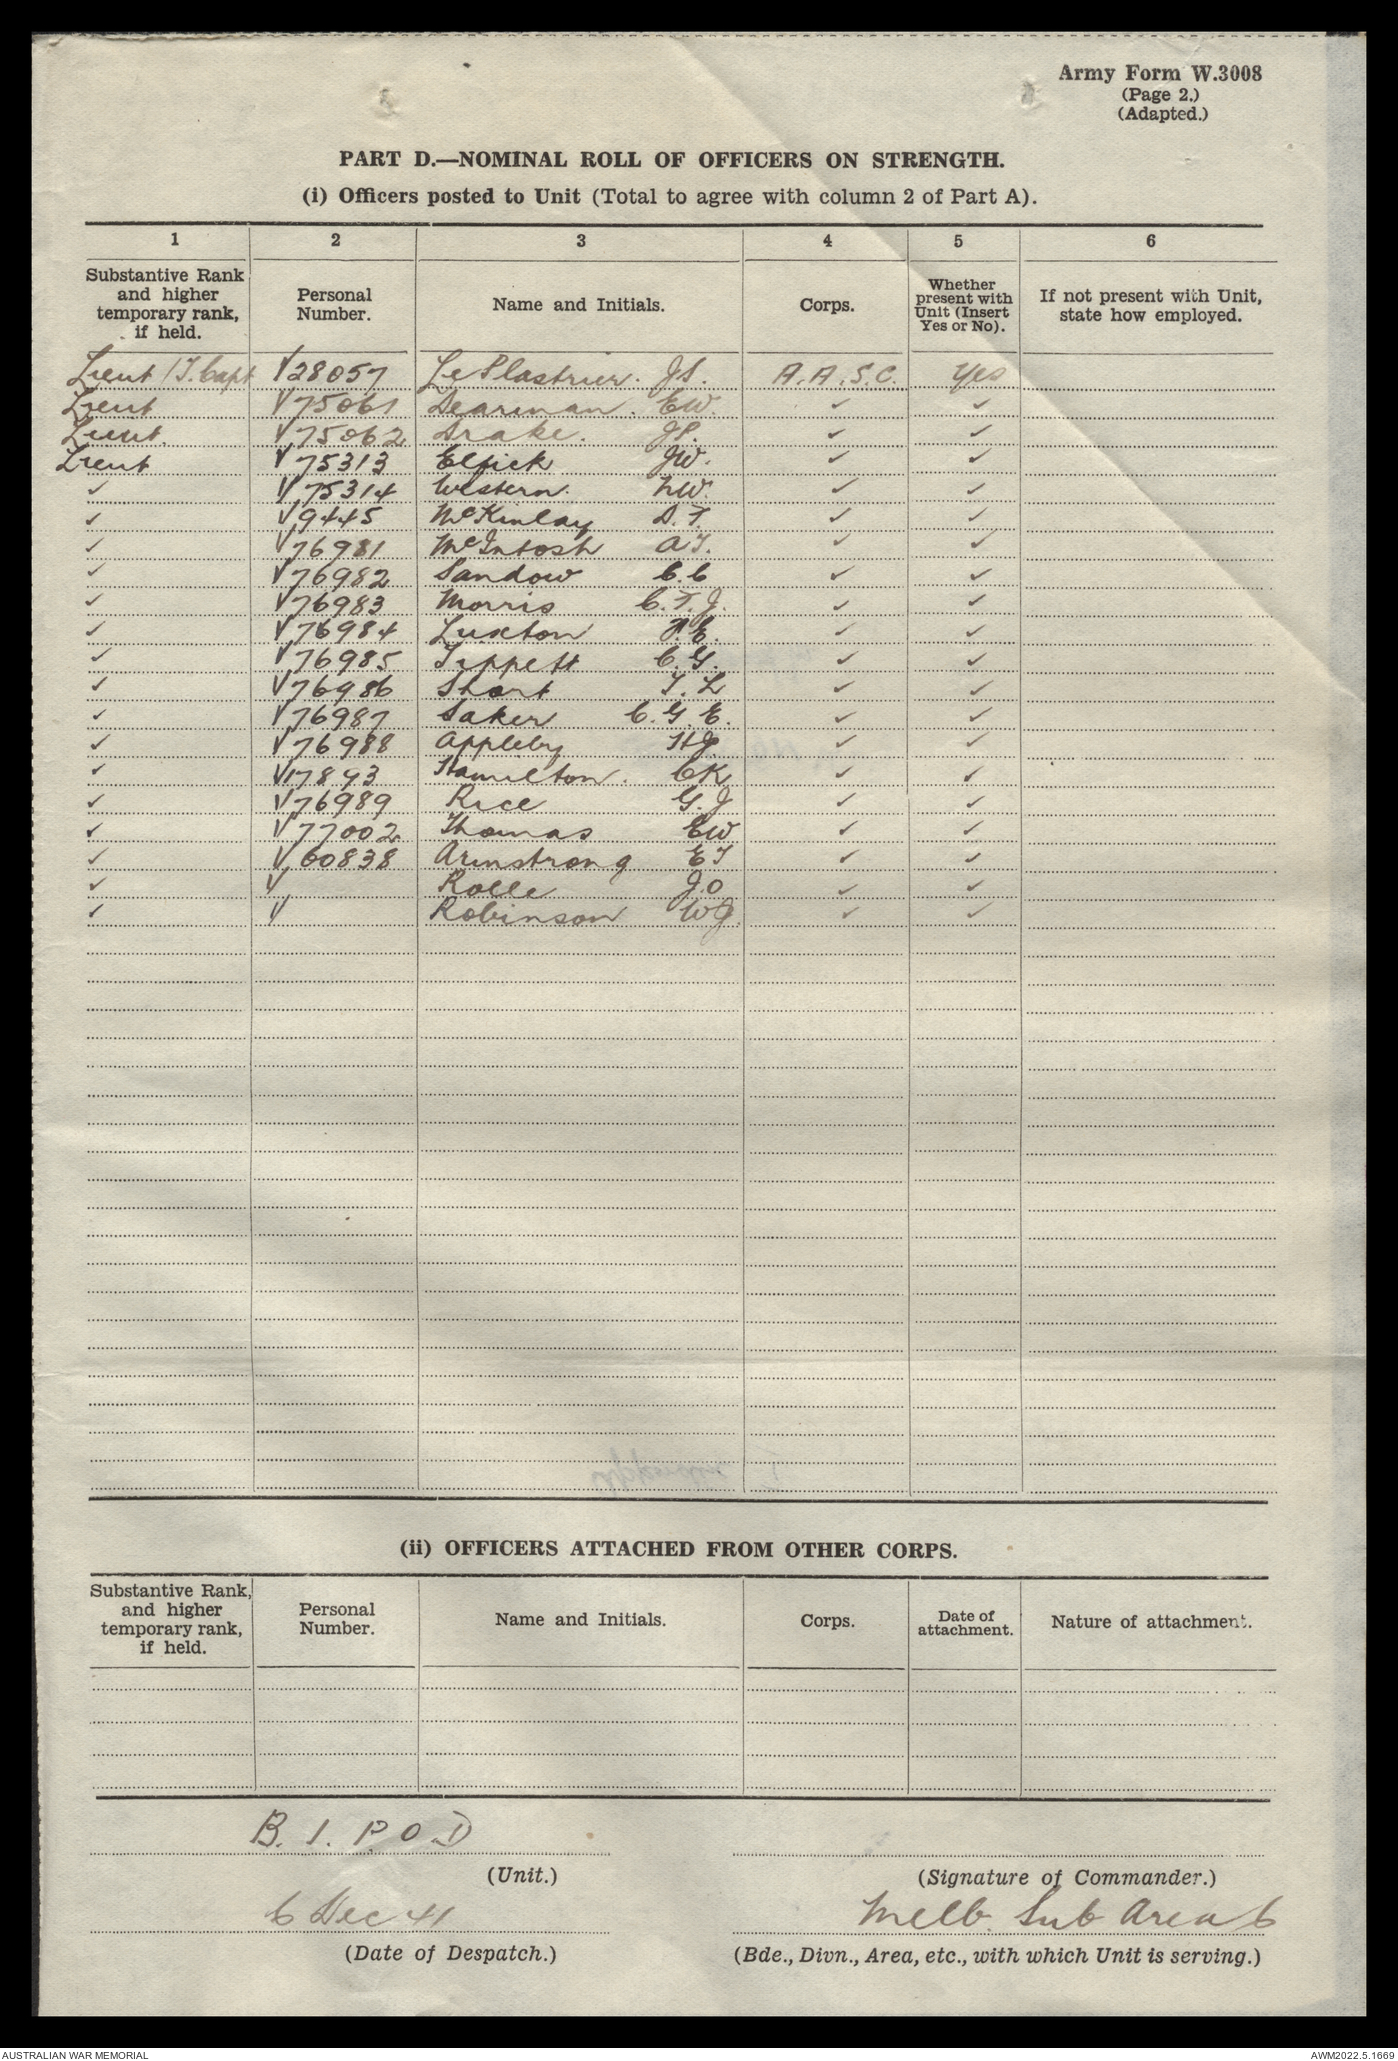 Army Form W.3008
(Page 2.)
(Adapted.)
PART D.—NOMINAL ROLL OF OFFICERS ON STRENGTH.
(i) Officers posted to Unit (Total to agree with column 2 of Part A).
1 2 3 4 5 6
Substantive Rank and higher temporary rank, if held. Personal Number. Name and Initials. Corps. Whether present with Unit (Insert Yes or No). If not present with Unit, state how employed.
Lieut /T.Capt V28057 Le Plastrier. J.S. A.A.S.C. Yes
Lieut V75061 Dearman. E.W. ✓ ✓
Lieut. V75062 Drake. J.P. ✓ ✓
Lieut V75313 Elfick J.W. ✓ ✓
✓ V75314 Western. L.W. ✓ ✓
✓ V9445 McKinlay D.F. ✓ ✓
✓ V76981 McIntosh A.J. ✓ ✓
✓ V76982 Sandow C.C ✓ ✓
✓ V76983 Morris C.F.J. ✓ ✓
✓ V76984 Luxton F.E. ✓ ✓
✓ V76985 Tippett C.G. ✓ ✓
✓ V76986 Short T.L ✓ ✓
✓ V76987 Saker C.G.E. ✓ ✓
✓ V76988 Appleby H.J. ✓ ✓
✓ V17893 Hamilton. C.K. ✓ ✓
✓ V76989 Rice G.J ✓ ✓
✓ V77002 Thomas E.W ✓ ✓
✓ V60838 Armstrong E.T ✓ ✓
✓ V Rolle J.O ✓ ✓
✓ V Robinson W.J. ✓ ✓
(ii) OFFICERS ATTACHED FROM OTHER CORPS.
Substantive Rank, and higher temporary rank, if held. Personal Number. Name and Initials. Corps. Date of attachment. Nature of attachment.
B. I. P. O. D
(Unit.) (Signature of Commander.)
6 Dec 41 Melb. Sub Area 6
(Date of Despatch.) (Bde., Divn., Area, etc., with which Unit is serving.)
AUSTRALIAN WAR MEMORIAL AWM2022.5.1669